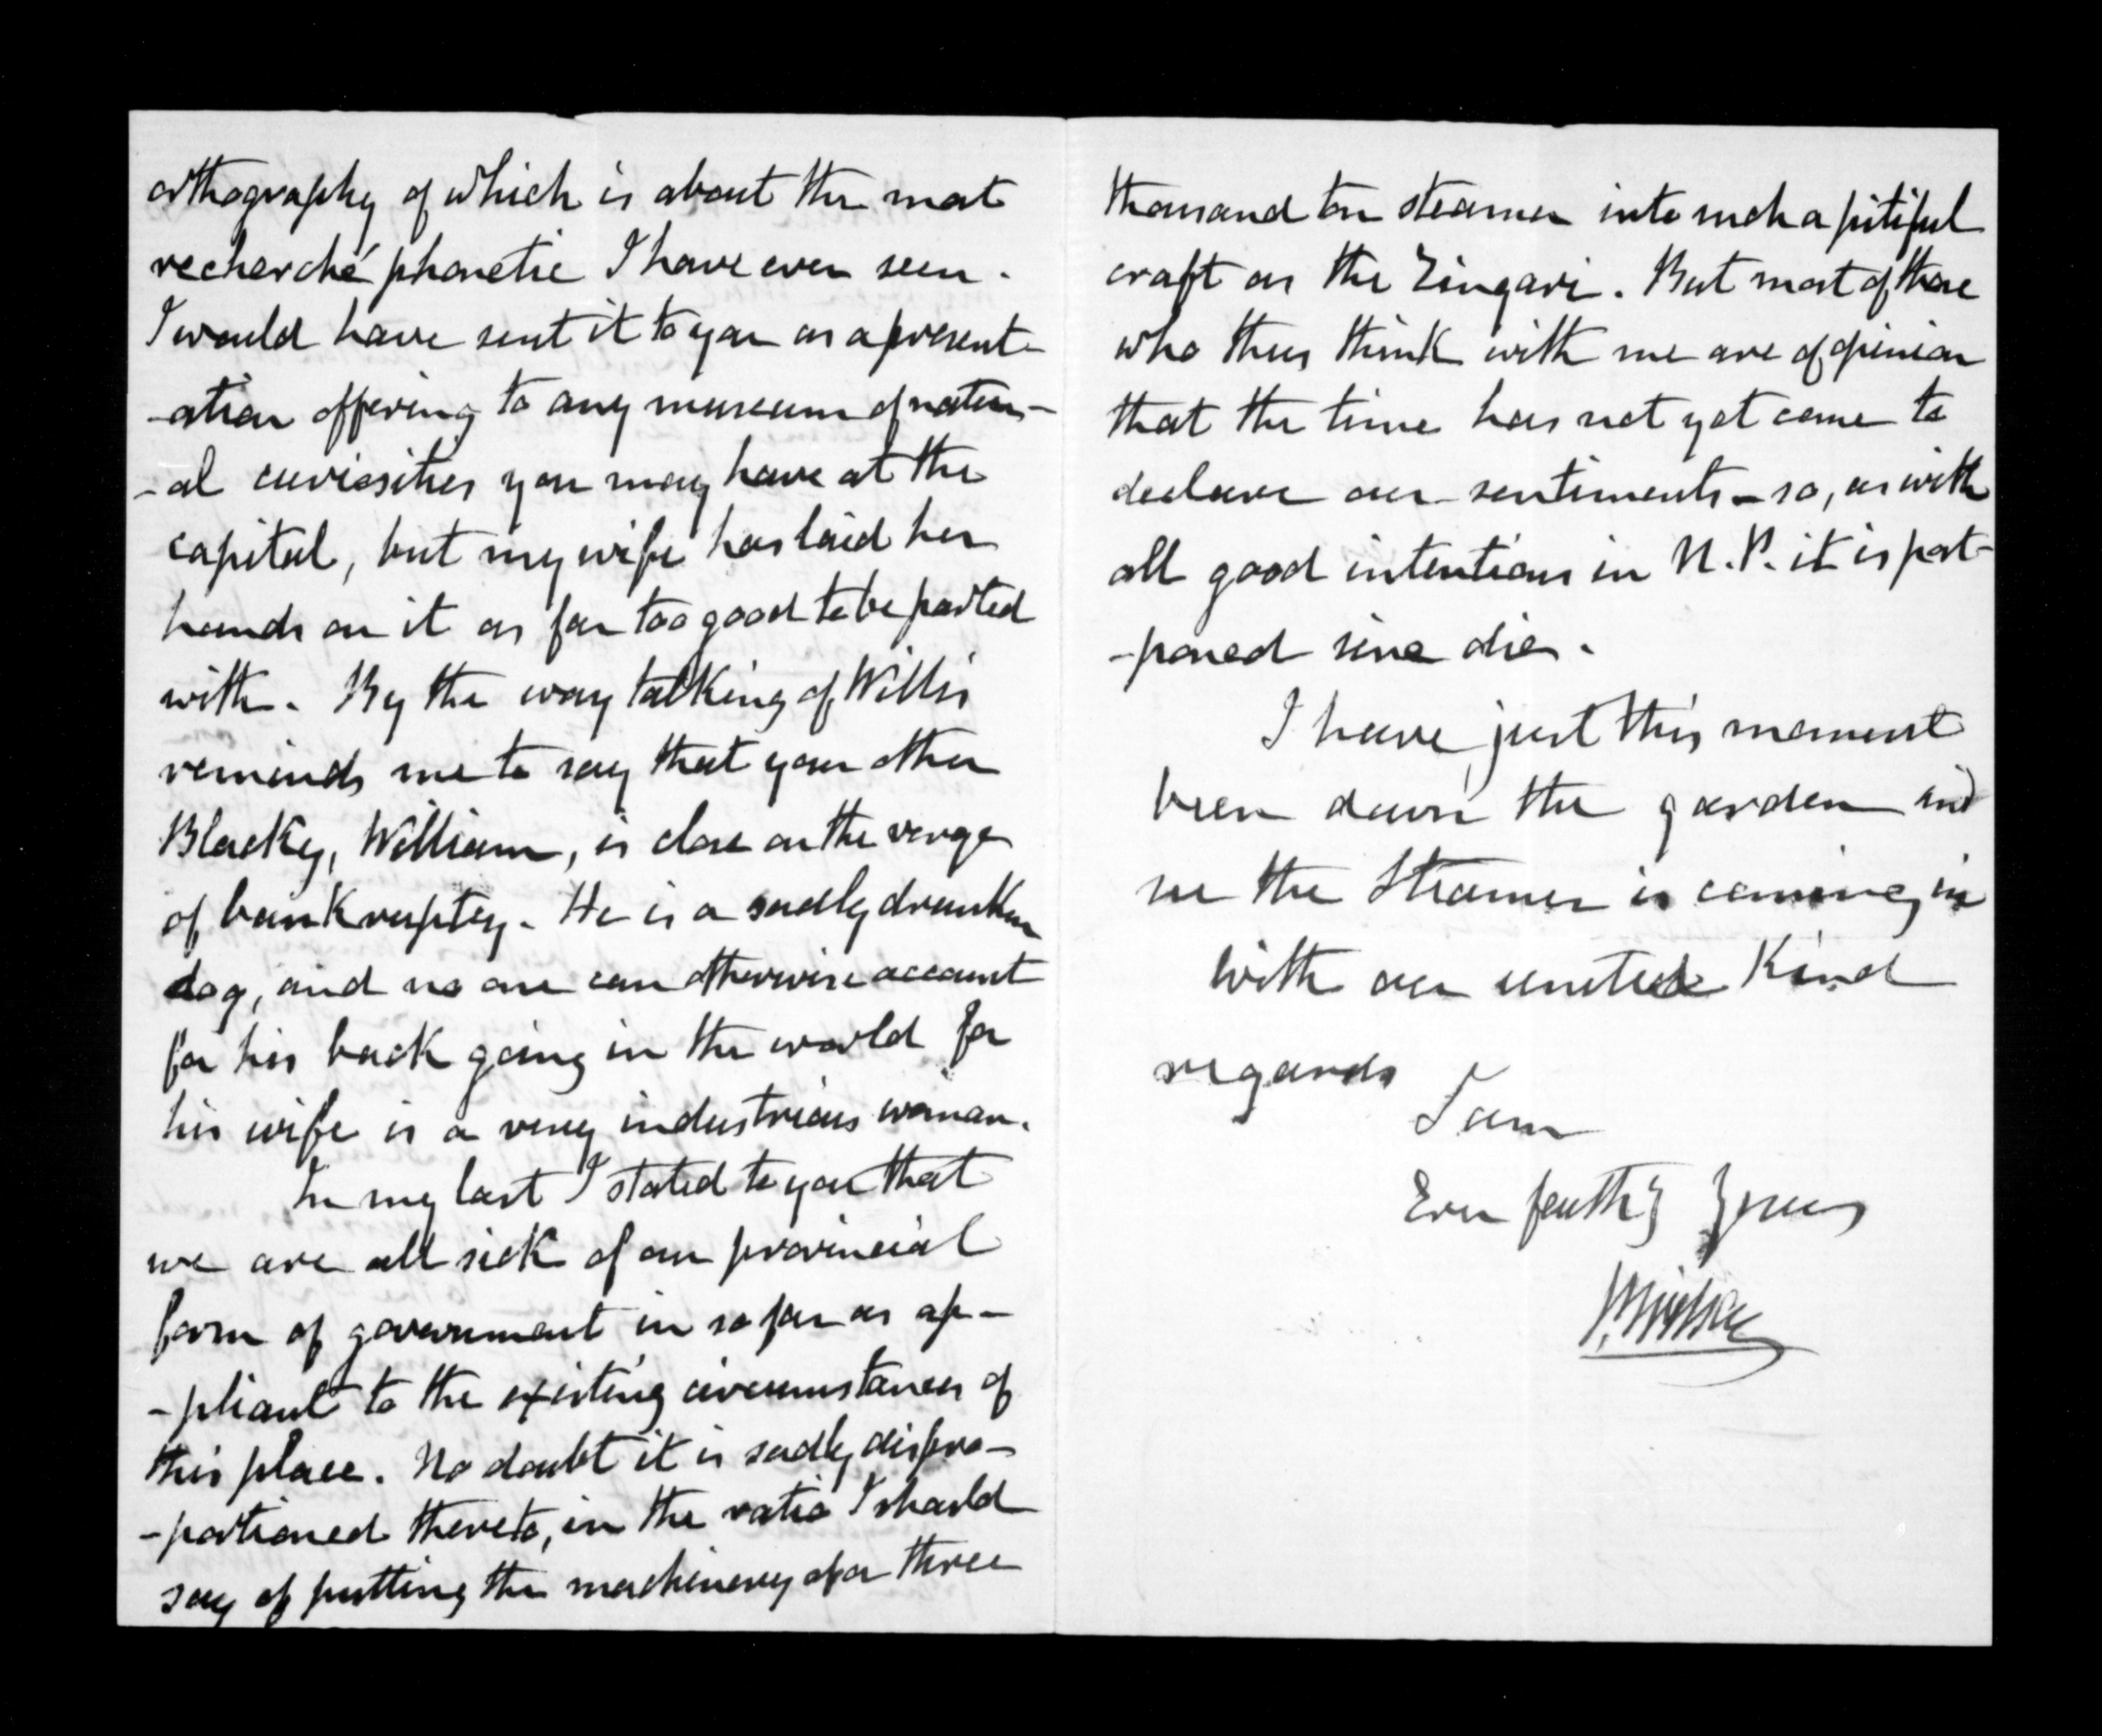 orthography of which is about the most
recherché phonetic I have ever seen.
I would have sent it to you as a present-
-ation offering to any museum of natur-
-al curiosities you may have at the
capital, but my wife has laid her
hands on it as far too good to be parted
with. By the way talking of Willis
reminds me to say that your other
Blacky, William, is close on the verge
of bankruptcy. He is a sadly drunken
dog, and no one can otherwise account
for his back going in the world for
his wife is a very industrious woman.
In my last I stated to you that
we are all sick of our provincial
form of government in so far as ap-
-pliant to the existing circumstances of
this place. No doubt it is sadly dispro-
-portioned thereto, in the ratio I should
say of putting the machinery of a three
thousand ton steamer into such a pitiful
craft as the Zingari. But most of those
who thus think with me are of opinion
that the time has not yet come to
declare our sentiments - so, as with
all good intentions in N.P. it is post-
-poned sine die.
I have just this moment
been down the garden and
see the Steamer is coming in
With our united Kind
regards
I am
Ever faithy Yours